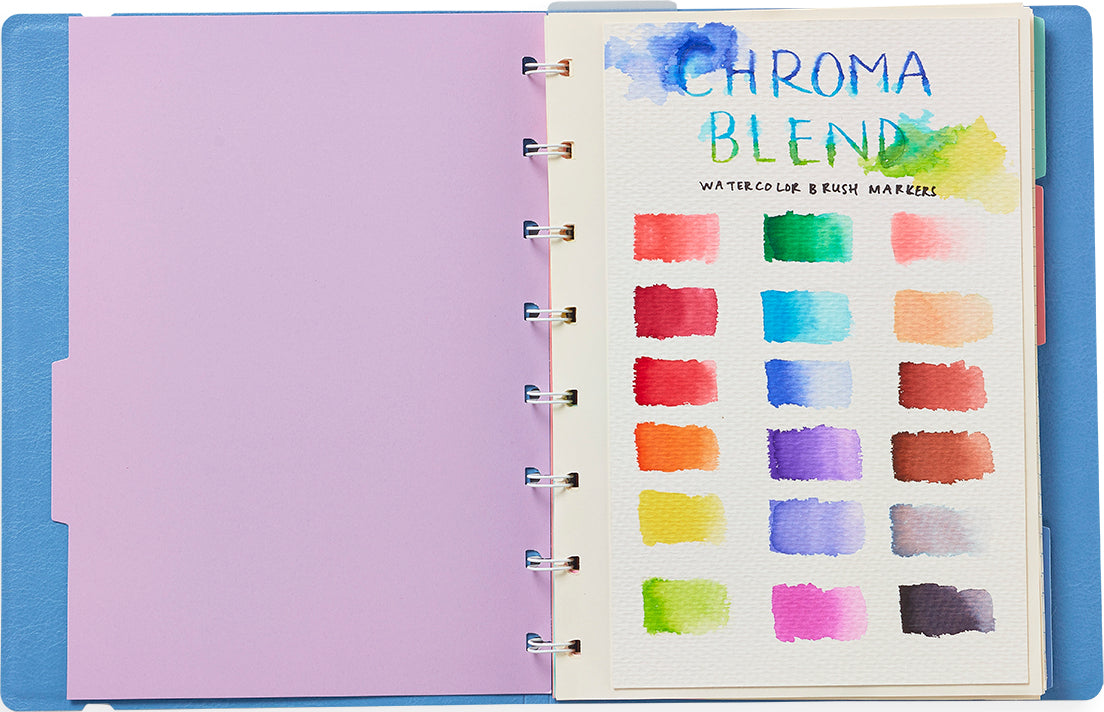 CHROMA
BLEND
WATERCOLOR BRUSH MARKERS